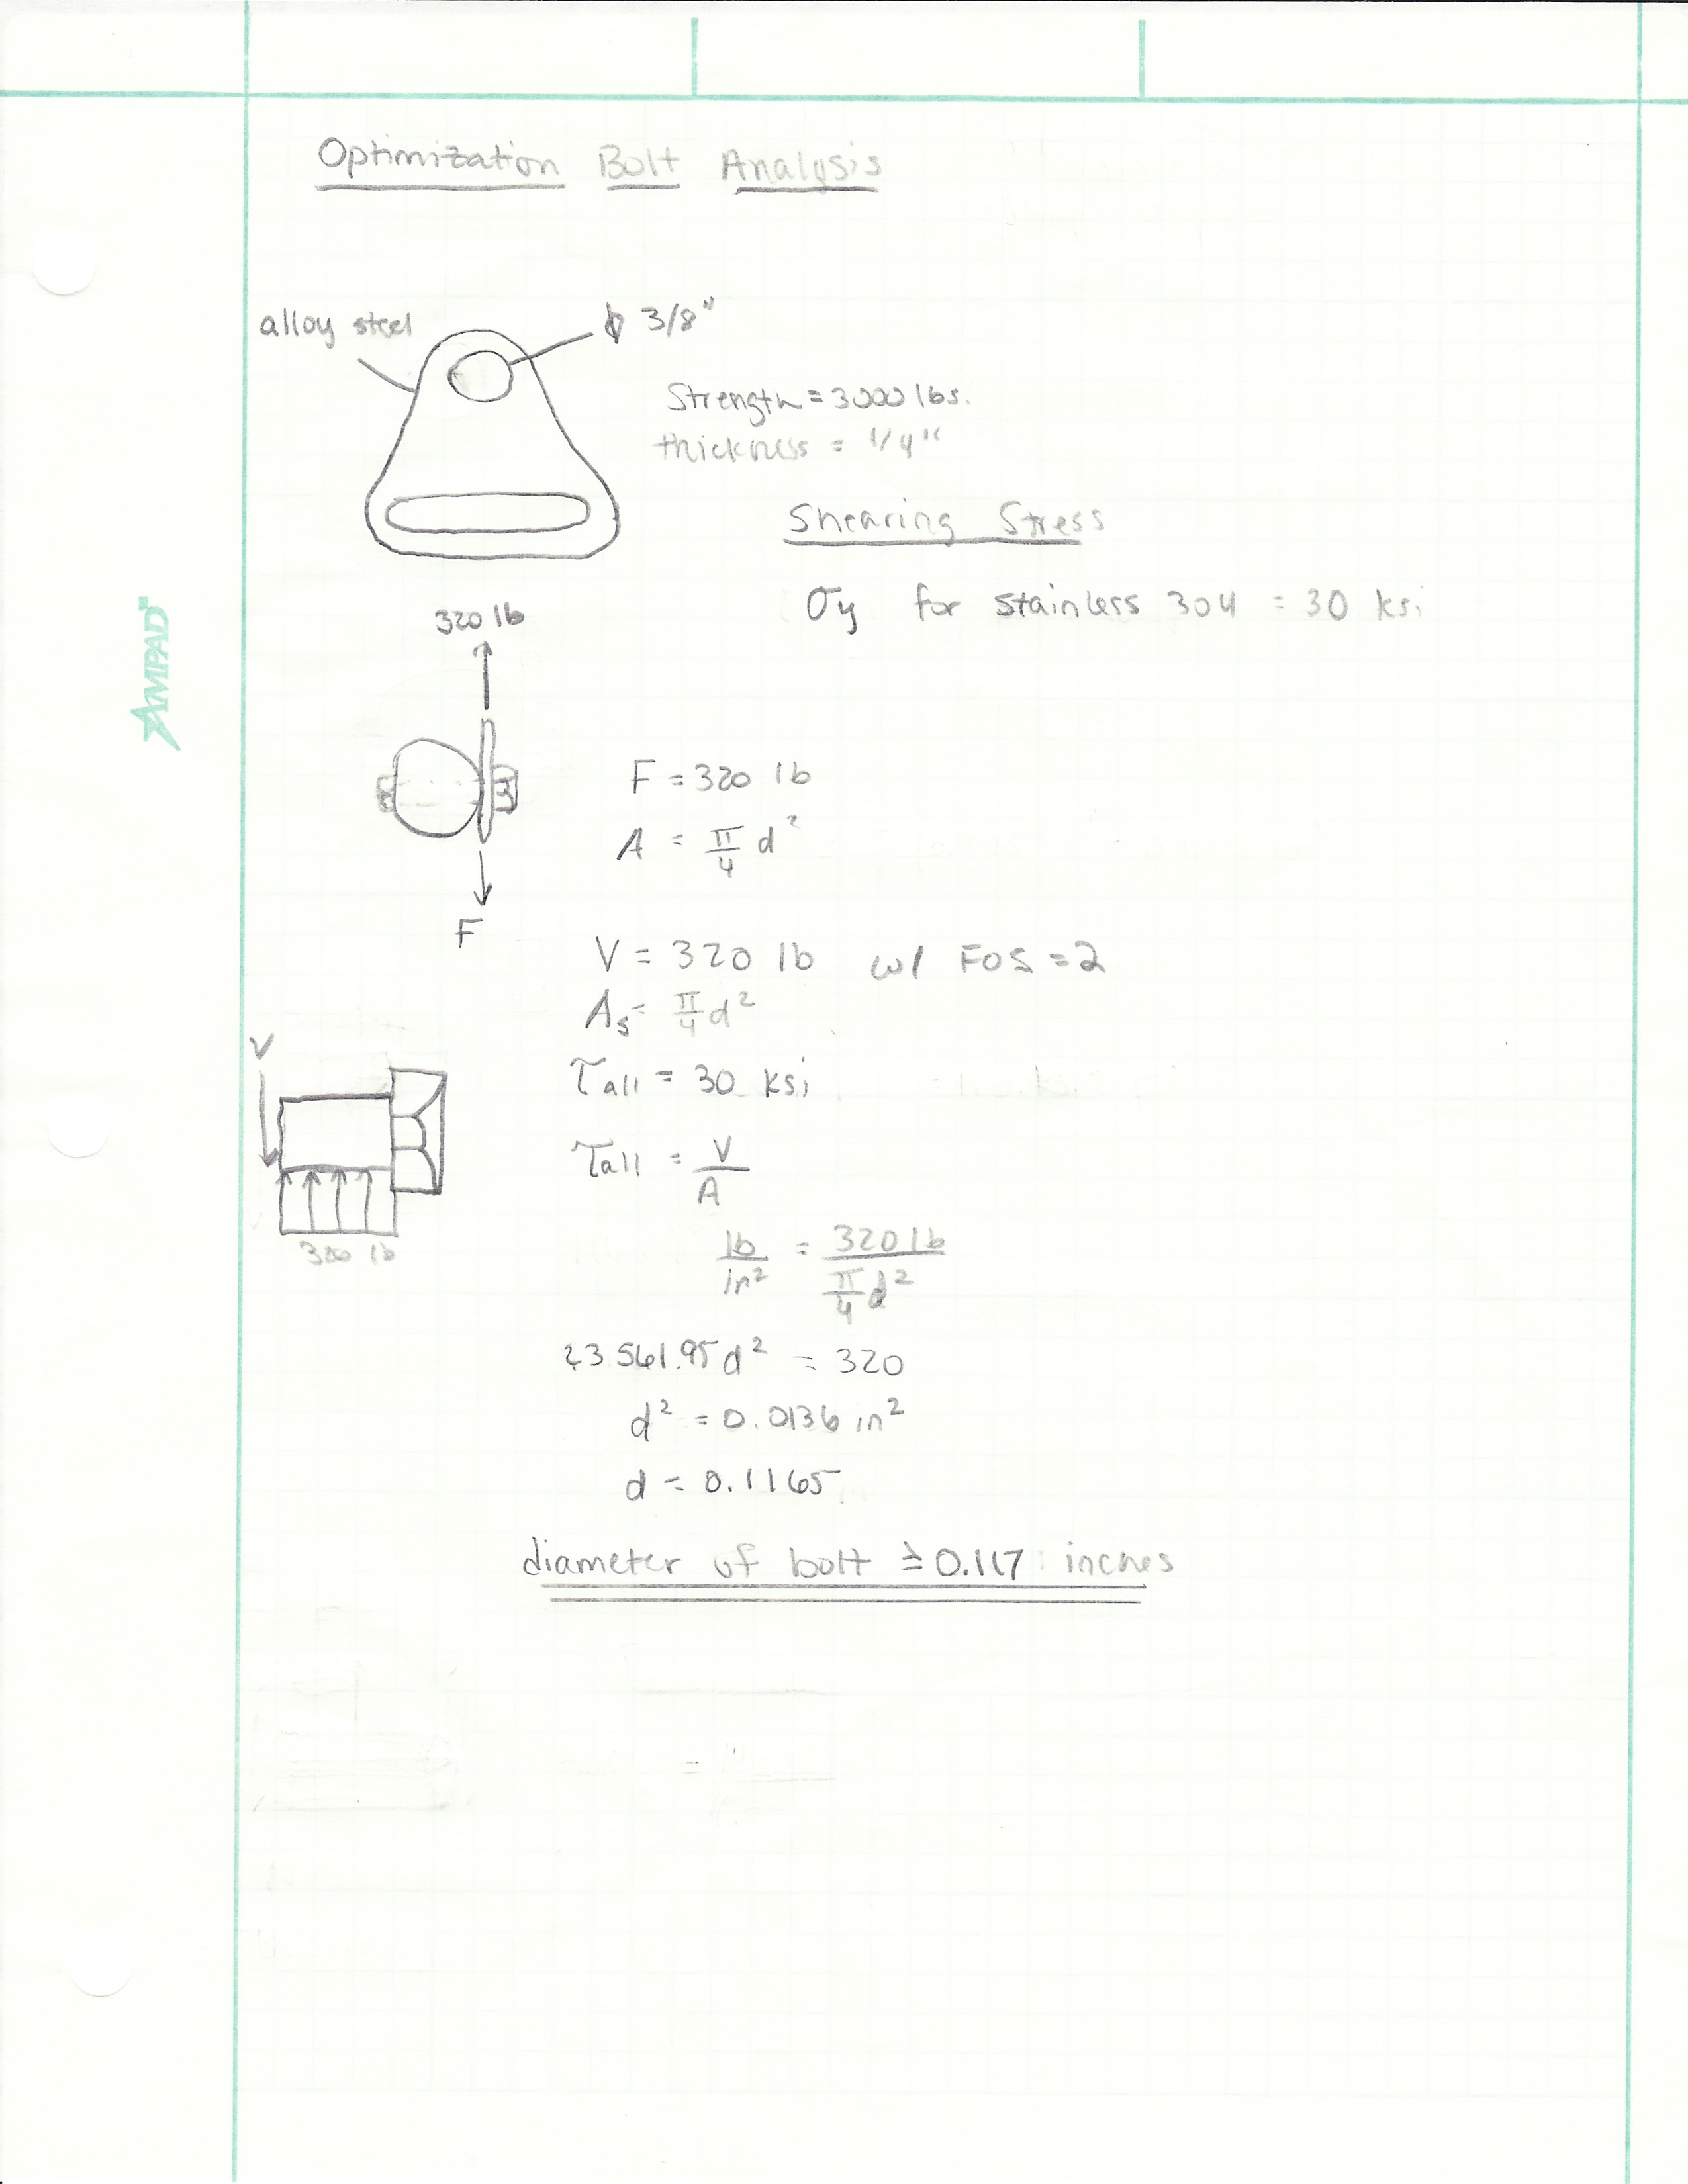 Optimization Bolt Analysis
alloy steel
ϕ 3/8"
Strength = 3000 lbs.
thickness = 1/4"
Shearing Stress
σy for stainless 304 = 30 ksi
320 lb
AMPAD
F = 320 lb
A = π/4 d²
F
V = 320 lb w/ FOS = 2
As = π/4 d²
V
τall = 30 ksi
τall = V/A
320 lb
lb/in² = 320 lb / π/4 d²
23561.95 d² = 320
d² = 0.0136 in²
d = 0.1165
diameter of bolt ≥ 0.117 inches